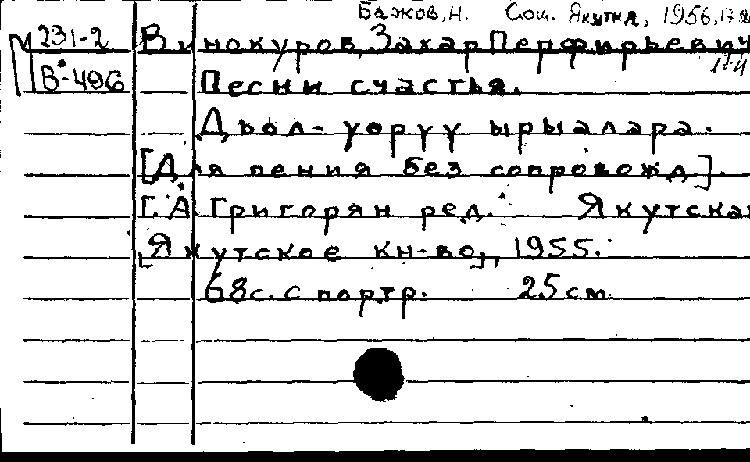 Бажов, Н. Соц. Якутия, 1956,
М 231-2 Винокуров, Захар Перфирьевич
В-496 Песни счастья.
Дьол-уоруу ырыалара.
[Для пения без сопровожд].
Г.А. Григорян ред. Якутска
[Якутское кн-во], 1955.
68с. с портр. 25 см.